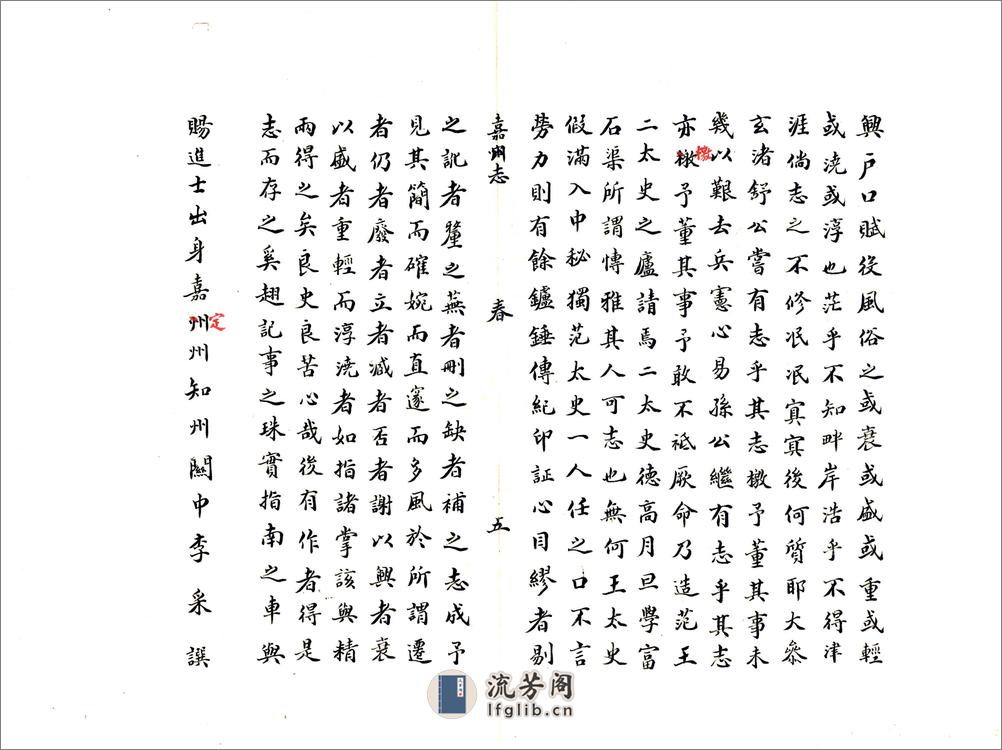 興戶口賦役風俗之或衰或盛或重或輕
或澆或淳也茫乎不知畔岸浩乎不得津
涯倘志之不修泯泯寘寘後何質耶大叅
玄渚舒公嘗有志乎其志檄予董其事未
幾以艱去兵憲心易孫公繼有志乎其志
亦檄予董其事予敢不祗厥命乃造范王
檄
二太史之廬請焉二太史德高月旦學富
石渠所謂愽雅其人可志也無何王太史
假滿入中秘獨范太史一人任之口不言
勞力則有餘鑪錘傳紀印証心目繆者剔
嘉州志 春 五
之訛者釐之蕪者刪之缺者補之志成予
見其簡而確婉而直邃而多風於所謂遷
者仍者廢者立者减者否者謝以興者衰
以盛者重輕而淳澆者如指諸掌該與精
兩得之矣良史良苦心哉後有作者得是
志而存之奚趐記事之珠實指南之車與
賜進士出身嘉州州知州關中李采譔
定
流芳阁
lfglib.cn